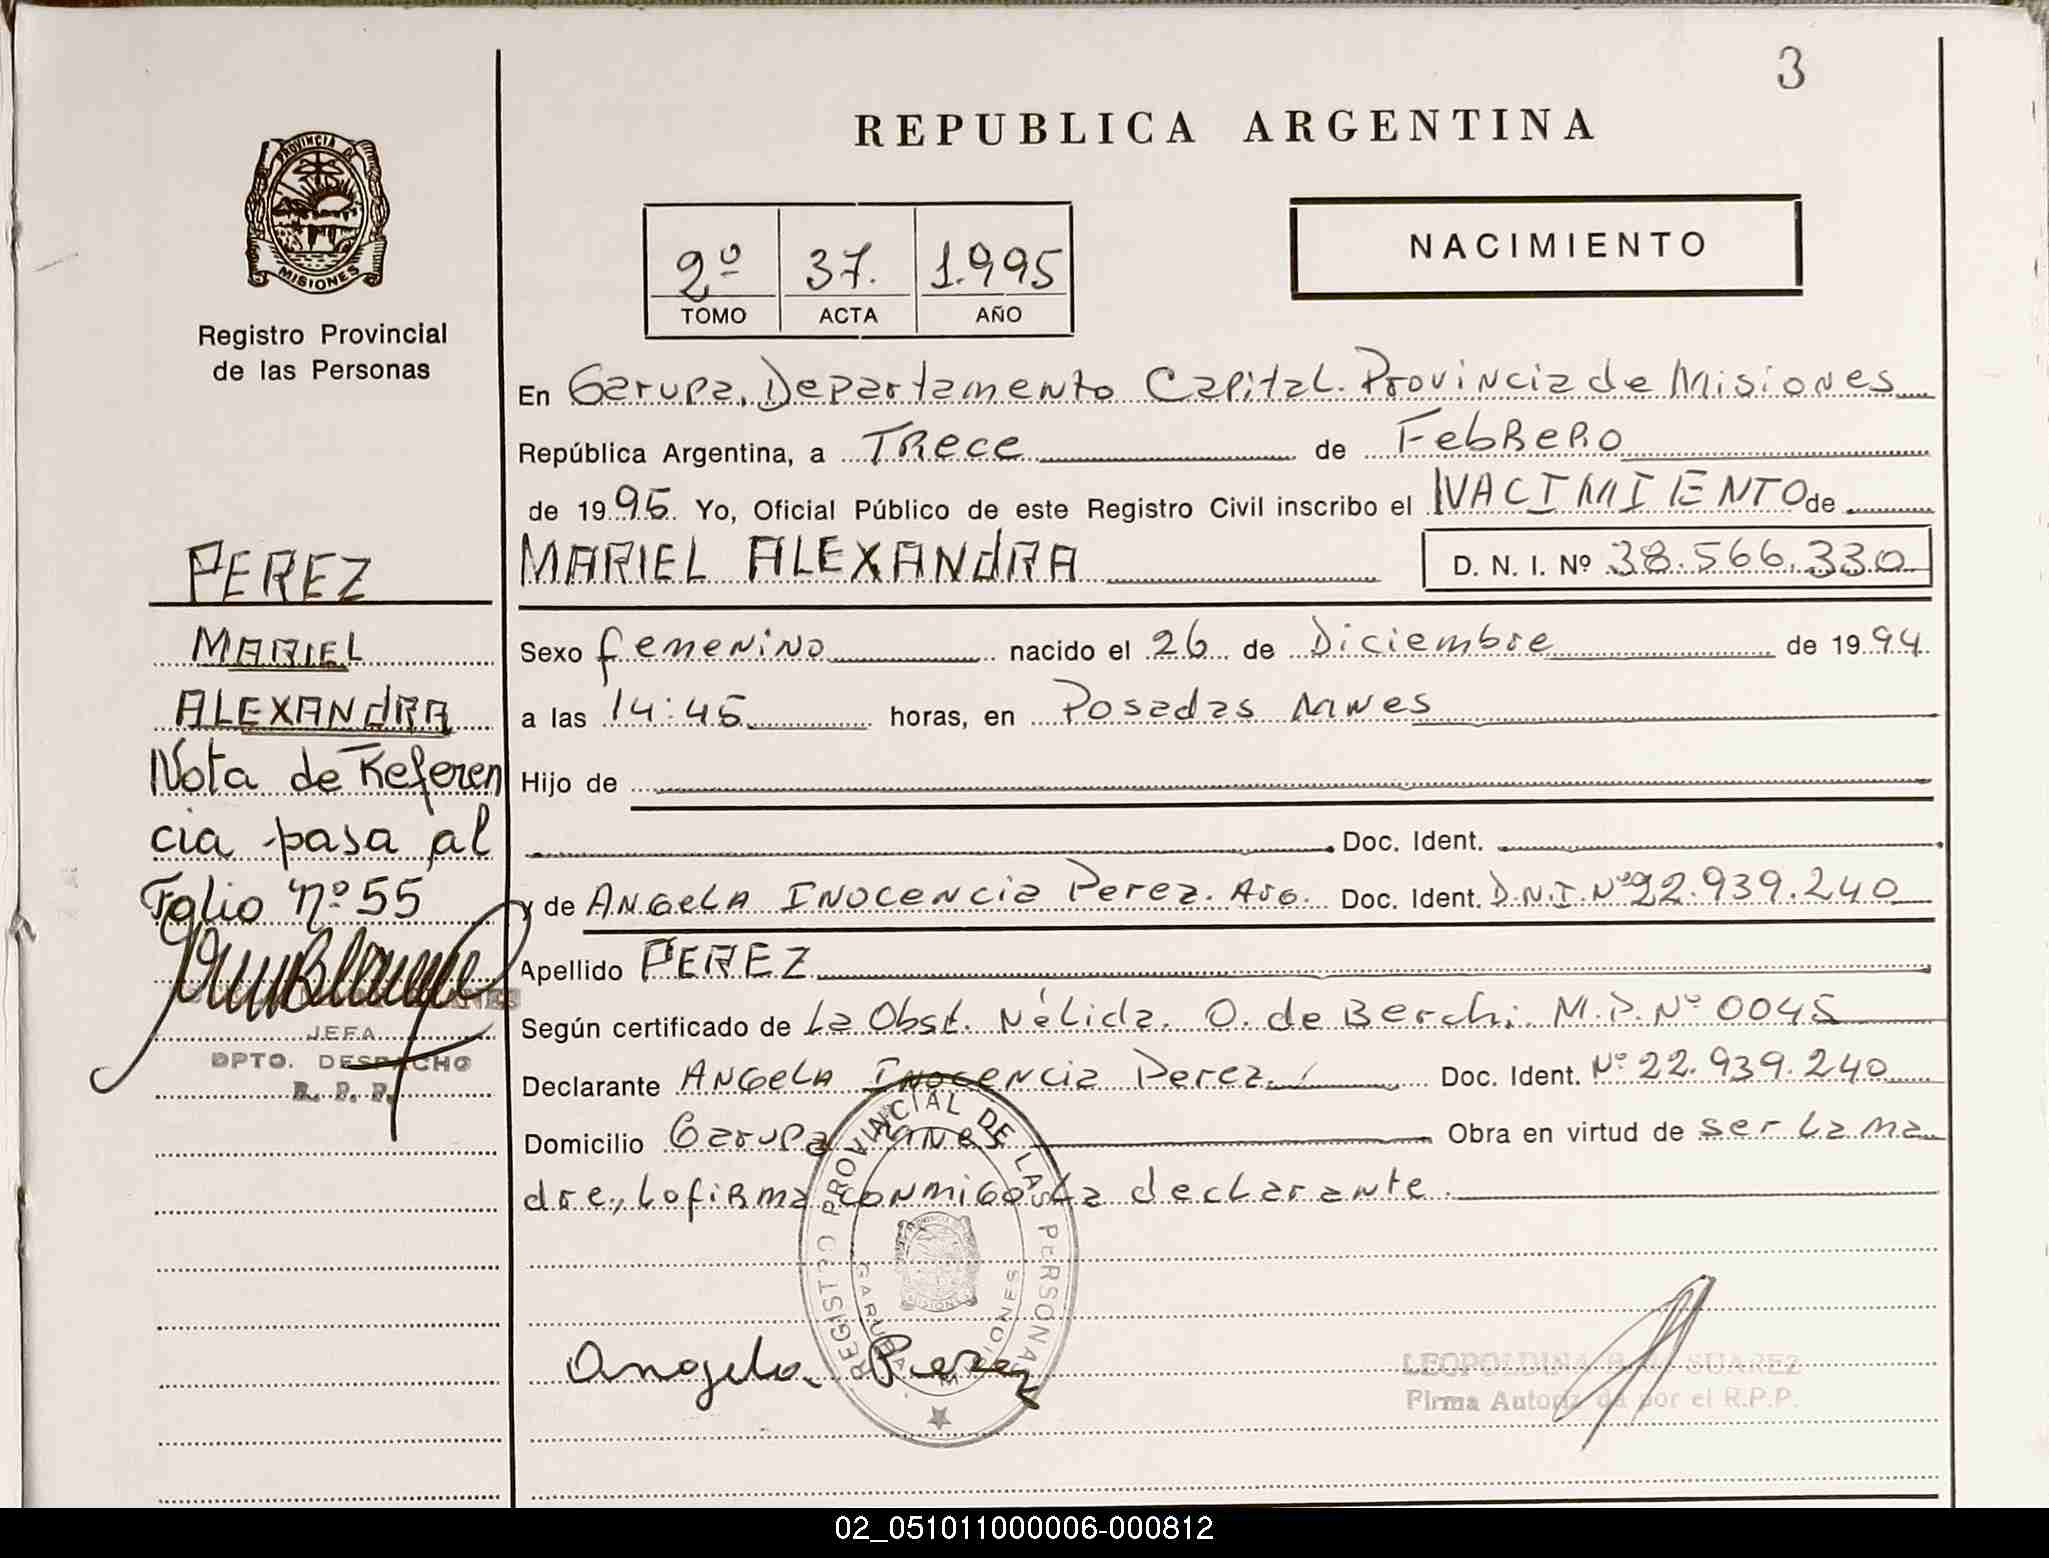 3
REPUBLICA ARGENTINA
PROVINCIA DE
MISIONES
Registro Provincial
de las Personas
2º 37. 1.995
TOMO ACTA AÑO
NACIMIENTO
En Garupa, Departamento Capital. Provincia de Misiones
República Argentina, a Trece de Febrero
de 1995 Yo, Oficial Público de este Registro Civil inscribo el NACIMIENTO de
MARIEL ALEXANdRA D. N. I. Nº 38.566.330
PEREZ
MARIEL
ALEXANdRA
Nota de Referen
cia pasa al
Folio Nº 55
JEFA
DPTO. DESPACHO
R. P. P.
Sexo femenino nacido el 26 de Diciembre de 1994
a las 14:45 horas, en Posadas Mnes
Hijo de
Doc. Ident.
y de Angela Inocencia Perez. Arg. Doc. Ident. D.N.I. Nº 22.939.240
Apellido PEREZ
Según certificado de La Obst. Nélida. O. de Berchi. M.P. Nº 0045
Declarante Angela Inocencia Perez Doc. Ident. Nº 22.939.240
Domicilio Garupa Mnes Obra en virtud de ser la ma
dre, lo firma conmigo la declarante.
REGISTRO PROVINCIAL DE LAS PERSONAS
GARUPA MISIONES
Angela Perez
LEOPOLDINA SUAREZ
Firma Autorizada por el R.P.P.
02_051011000006-000812